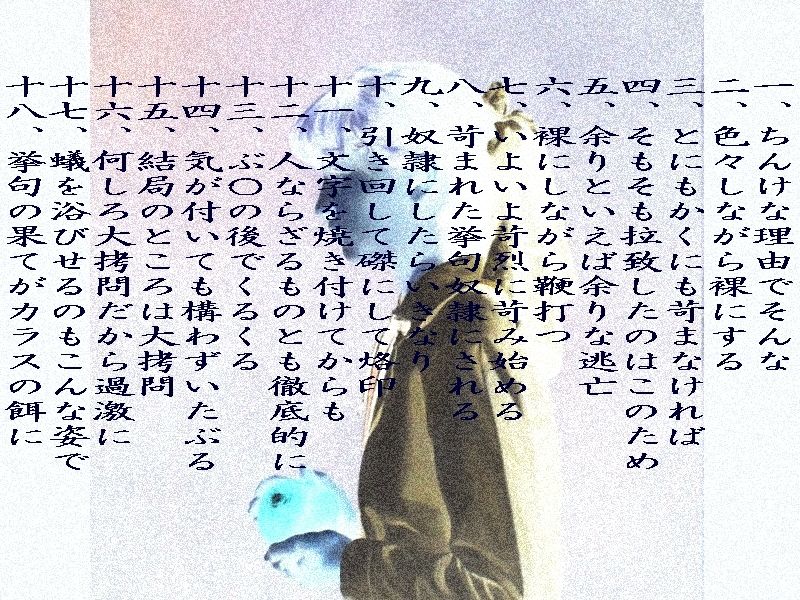 一、ちんけな理由でそんな
二、色々しながら裸にする
三、とにもかくにも苛まなければ
四、そもそも拉致したのはこのため
五、余りといえば余りな逃亡
六、裸にしながら鞭打つ
七、いよいよ苛烈に苛み始める
八、苛まれた挙句奴隷にされる
九、奴隷にしたらいきなり
十、引き回して磔にして烙印
十一、文字を焼き付けてからも
十二、人ならざるものとも徹底的に
十三、ぶ〇の後でくるくる
十四、気が付いても構わずいたぶる
十五、結局のところは大拷問
十六、何しろ大拷問だから過激に
十七、蟻を浴びせるのもこんな姿で
十八、挙句の果てがカラスの餌に